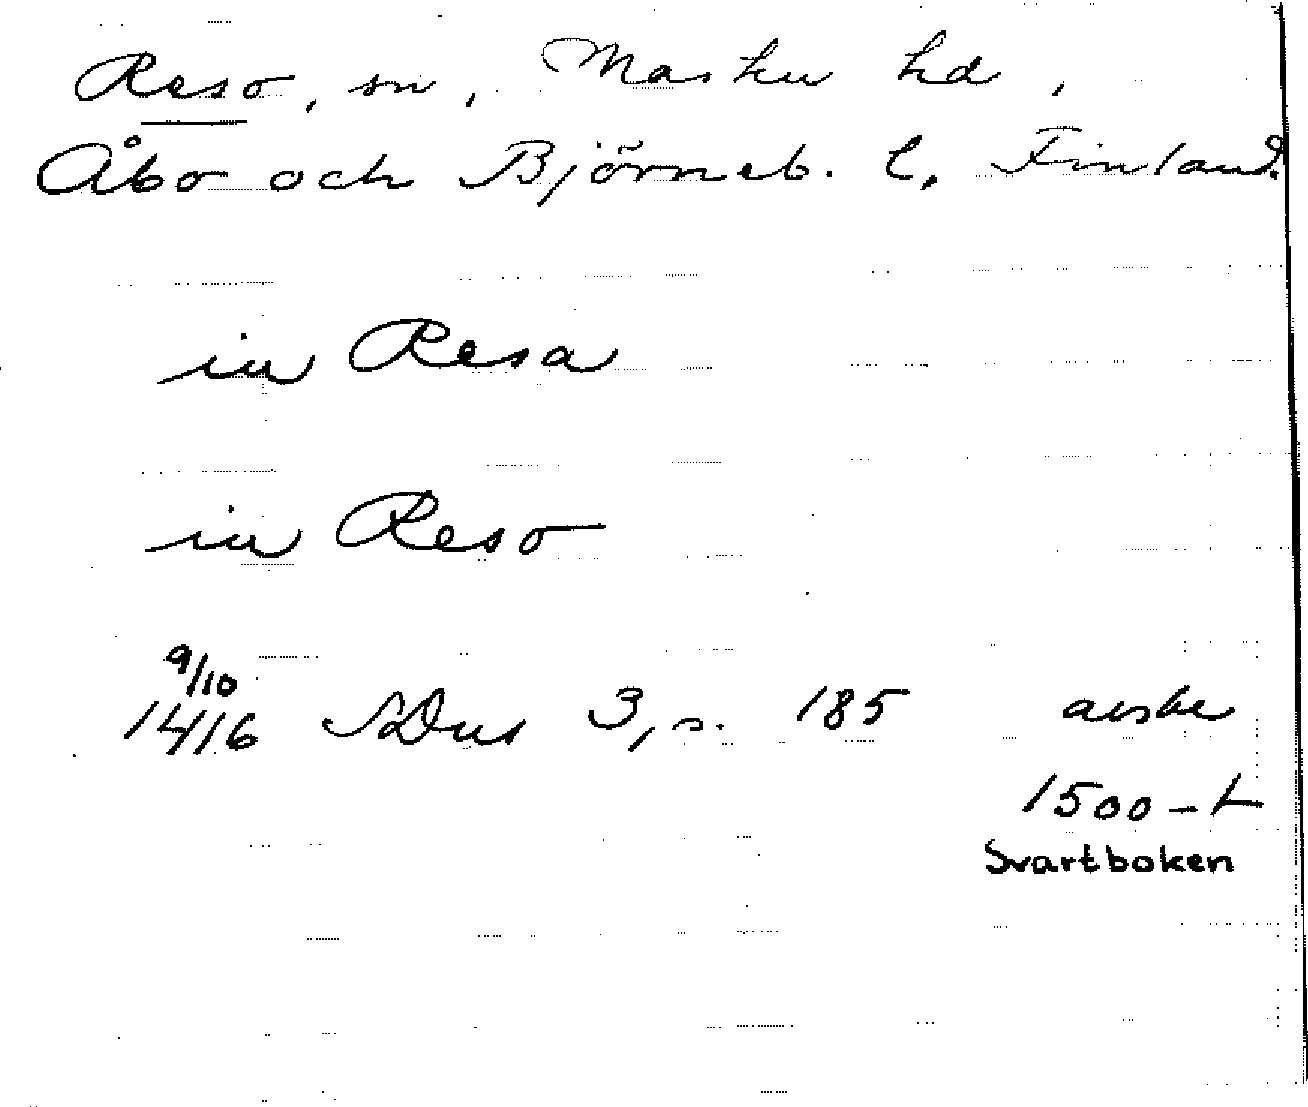 Reso, sn, Masku hd,
Åbo och Björneb. l, Finland.
in Resa
in Reso
9/10
1416 SDns 3, s. 185 avskr
1500-t
Svartboken